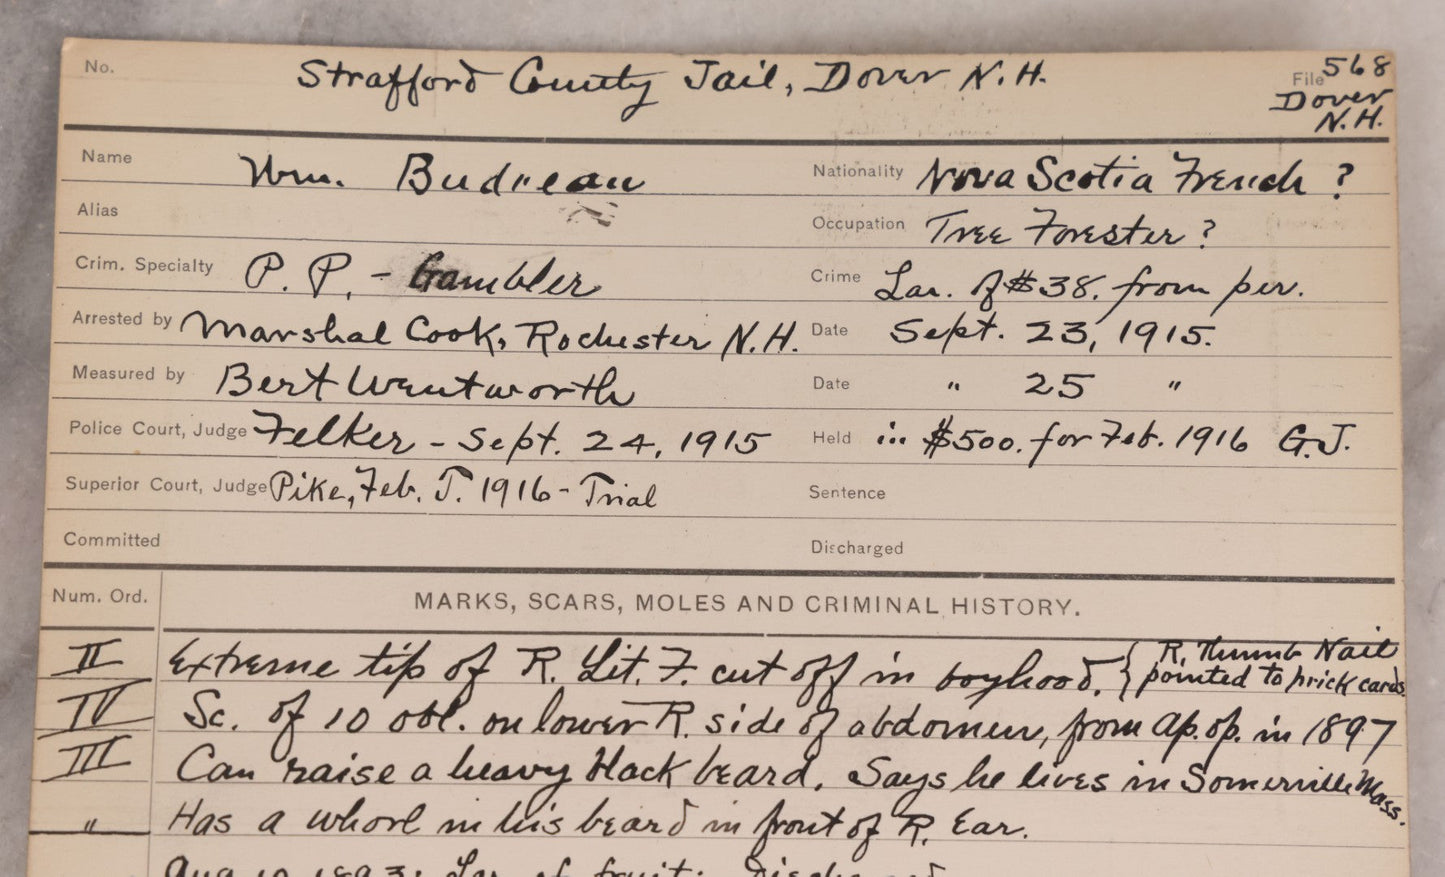 No. Strafford County Jail, Dover N.H. File 568
Dover
N.H.
Name Wm. Budreau Nationality Nova Scotia French ?
Alias Occupation Tree Forester ?
Crim. Specialty P. P. - Gambler Crime Lar. of $38. from per.
Arrested by Marshal Cook, Rochester N.H. Date Sept. 23, 1915.
Measured by Bert Wentworth Date " 25 "
Police Court, Judge Felker - Sept. 24, 1915 Held in $500. for Feb. 1916 G.J.
Superior Court, Judge Pike, Feb. T. 1916 - Trial Sentence
Committed Discharged
Num. Ord. MARKS, SCARS, MOLES AND CRIMINAL HISTORY.
II Extreme tip of R. Lit. F. cut off in boyhood. { R. Thumb Nail
pointed to prick cards.
IV Sc. of 10 obl. on lower R. side of abdomen, from ap. op. in 1897
III Can raise a heavy black beard. Says he lives in Somerville Mass.
" Has a whorl in his beard in front of R. Ear.
Lar. of fruit;